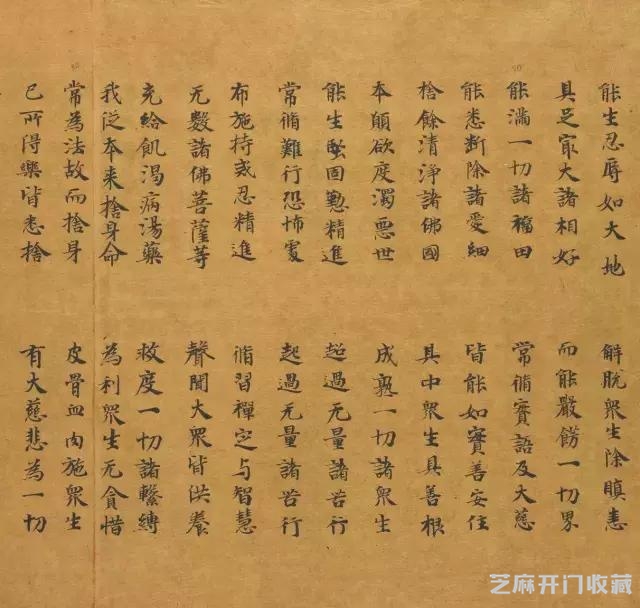 能生忍辱如大地　解脱衆生除瞋恚
具足冣大諸相好　而能嚴餝一切界
能滿一切諸福田　常脩實語及大慈
能悉斷除諸愛細　皆能如實善安住
捨餘清淨諸佛國　具中衆生具善根
本願欲度濁惡世　成熟一切諸衆生
能生堅固懃精進　超過无量諸苦行
常脩難行恐怖處　起過无量諸苦行
布施持戒忍精進　脩習禪定与智慧
无數諸佛菩薩等　聲聞大衆皆洪養
充給飢渴病湯藥　救度一切諸繫縛
我從本来捨身命　為利衆生无貪惜
常為法故而捨身　皮骨血肉施衆生
已所得樂皆悉捨　有大慈悲為一切
芝麻开门收藏